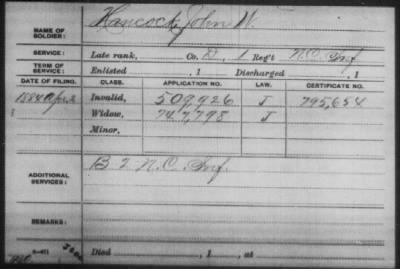 NAME OF SOLDIER: Hancock, John W.
SERVICE: Late rank, Co. D, 1 Reg't N.C. Inf
TERM OF SERVICE: Enlisted , 1 Discharged , 1
DATE OF FILING. CLASS. APPLICATION NO. LAW. CERTIFICATE NO.
1884 Apr 2 Invalid, 509,926 J 795,654
Widow, 747,798 J
Minor,
ADDITIONAL SERVICES: B 2 N.C. Inf.
REMARKS:
Died , 1 , at